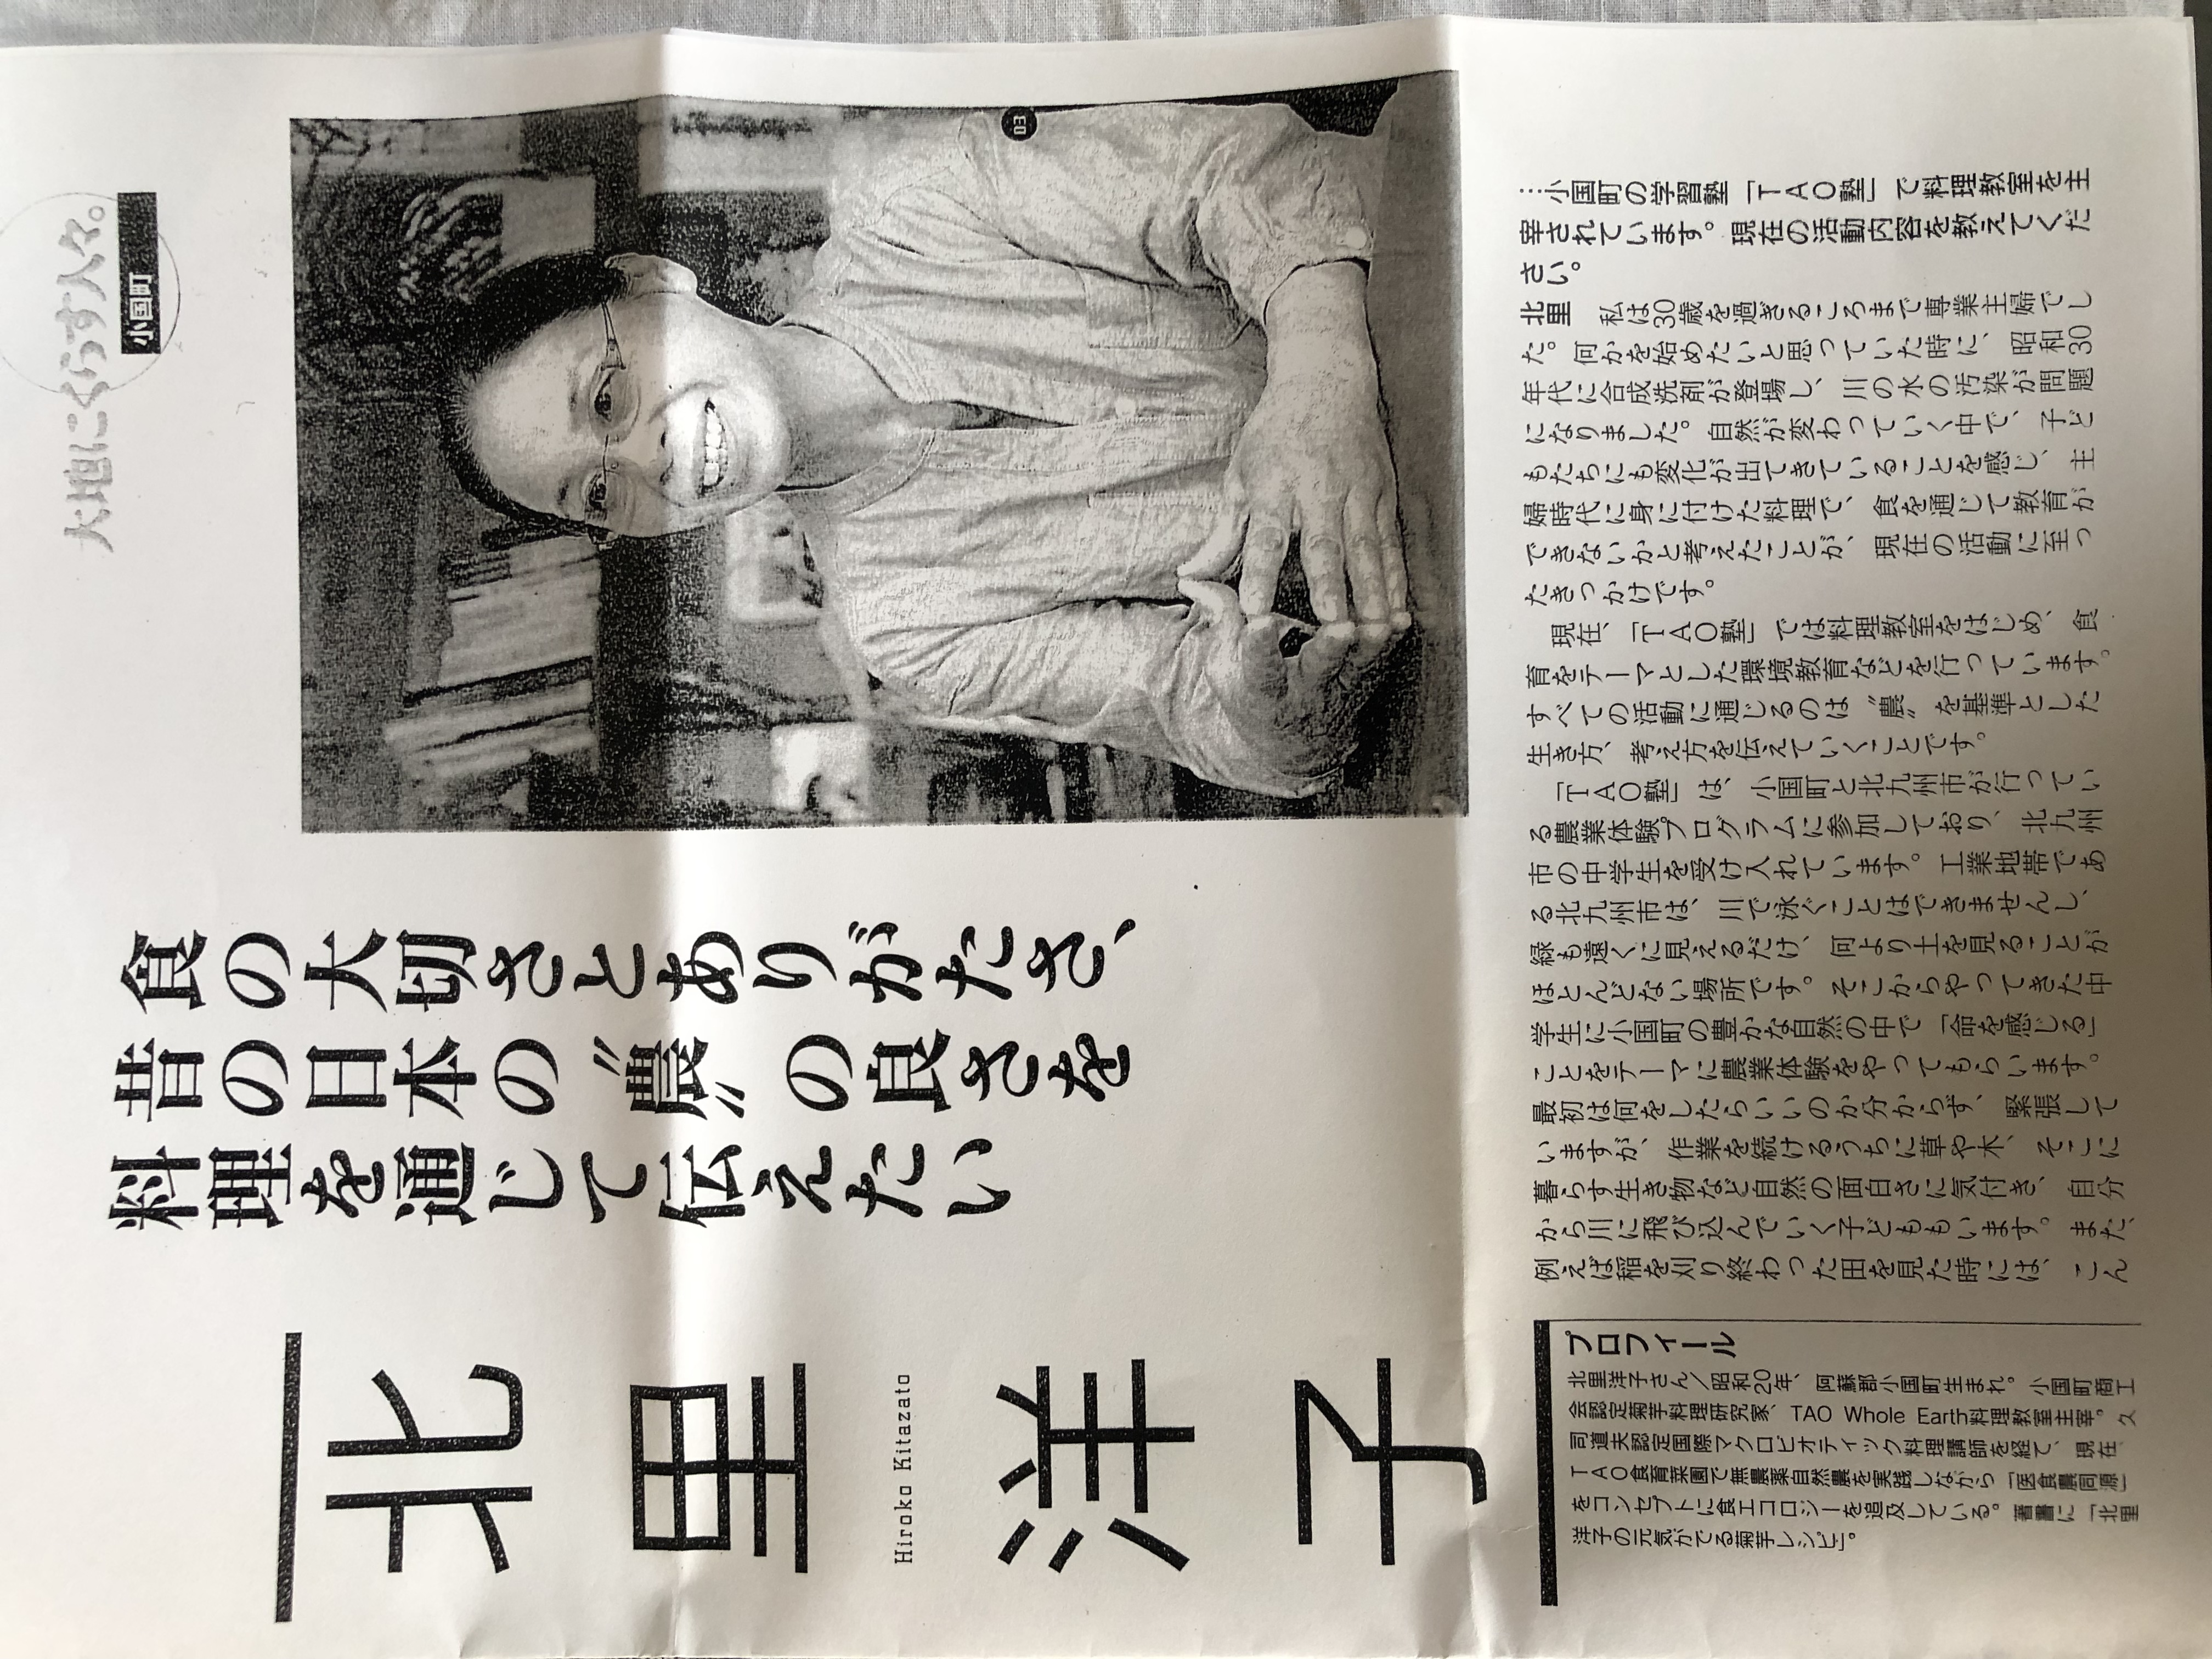 大地にくらす人々。
小国町
03
食の大切さとありがたさ、
昔の日本の〝農〟の良さを
料理を通じて伝えたい
北里洋子
Hiroko Kitazato
…小国町の学習塾「TAO塾」で料理教室を主
宰されています。現在の活動内容を教えてくだ
さい。
北里　私は30歳を過ぎるころまで専業主婦でし
た。何かを始めたいと思っていた時に、昭和30
年代に合成洗剤が登場し、川の水の汚染が問題
になりました。自然が変わっていく中で、子ど
もたちにも変化が出てきていることを感じ、主
婦時代に身に付けた料理で、食を通じて教育が
できないかと考えたことが、現在の活動に至っ
たきっかけです。
現在、「TAO塾」では料理教室をはじめ、食
育をテーマとした環境教育などを行っています。
すべての活動に通じるのは〝農〟を基準とした
生き方、考え方を伝えていくことです。
「TAO塾」は、小国町と北九州市が行ってい
る農業体験プログラムに参加しており、北九州
市の中学生を受け入れています。工業地帯であ
る北九州市は、川で泳ぐことはできませんし、
緑も遠くに見えるだけ、何より土を見ることが
ほとんどない場所です。そこからやってきた中
学生に小国町の豊かな自然の中で「命を感じる」
ことをテーマに農業体験をやってもらいます。
最初は何をしたらいいのか分からず、緊張して
いますが、作業を続けるうちに草や木、そこに
暮らす生き物など自然の面白さに気付き、自分
から川に飛び込んでいく子どももいます。また、
例えば稲を刈り終わった田を見た時には、こん
プロフィール
北里洋子さん／昭和20年、阿蘇郡小国町生まれ。小国町商工
会認定菊芋料理研究家、TAO Whole Earth料理教室主宰。久
司道夫認定国際マクロビオティック料理講師を経て、現在
TAO食育菜園で無農薬自然農を実践しながら「医食農同源」
をコンセプトに食エコロジーを追及している。著書に「北里
洋子の元気がでる菊芋レシピ」。